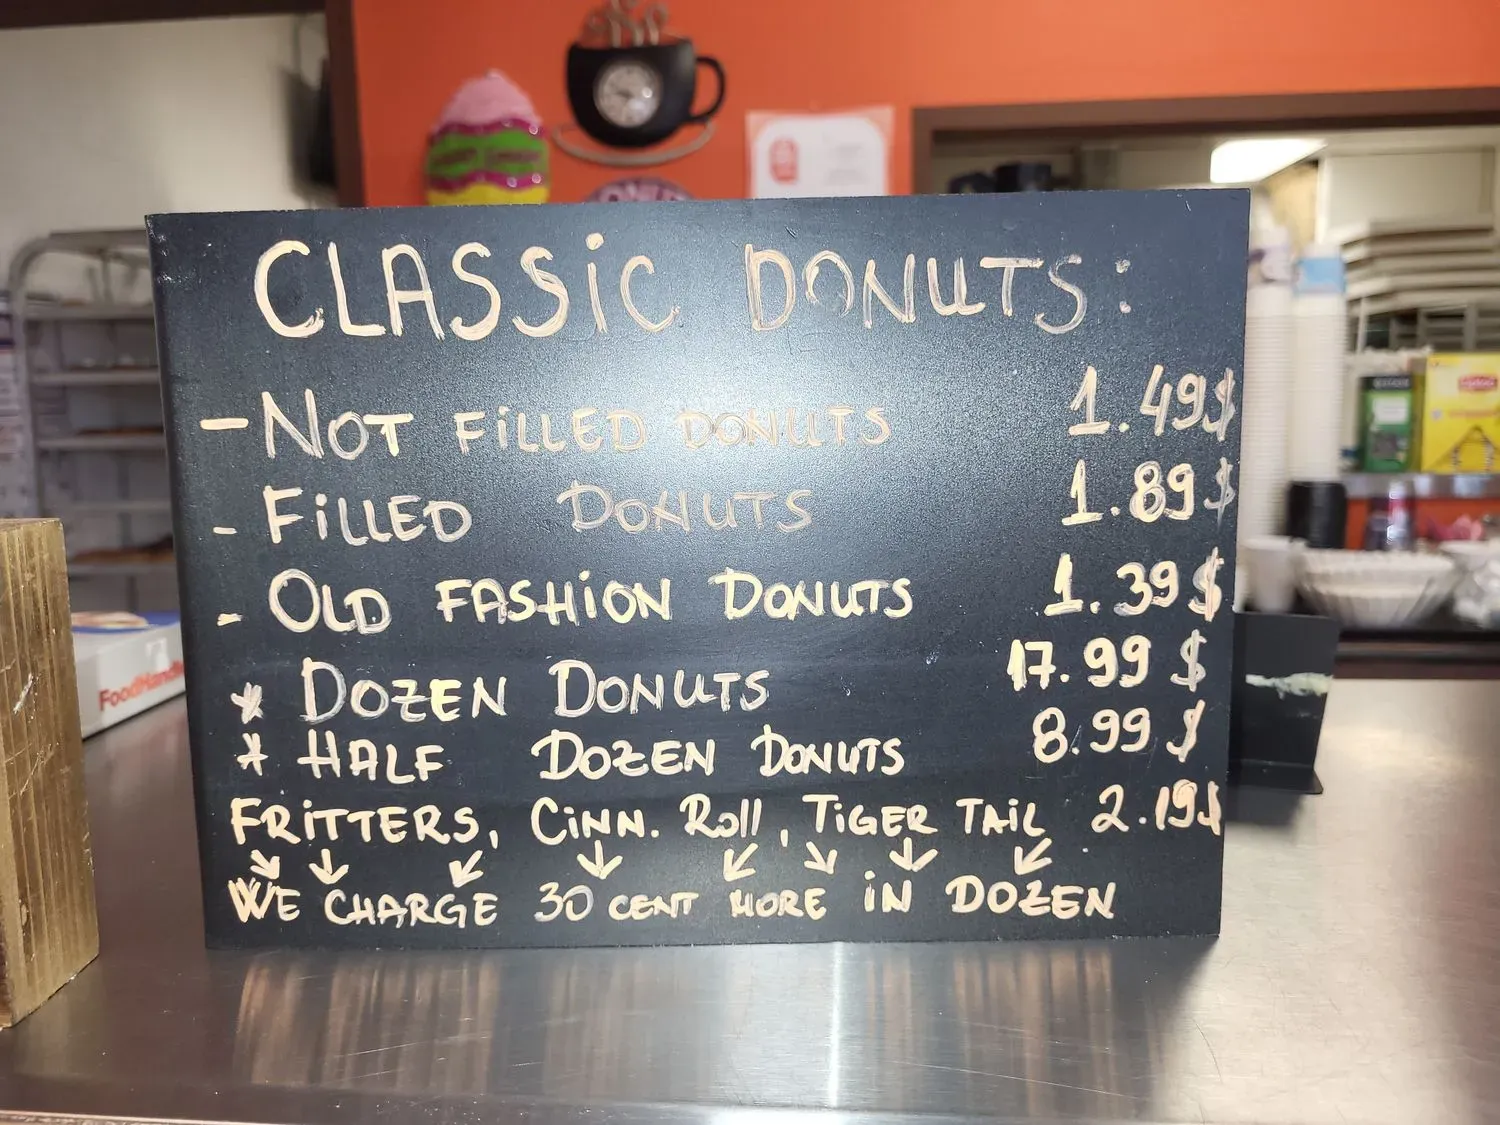 CLASSiC DONUTS:
- NOT FiLLED DONUTS 1.49$
- FiLLED DONUTS 1.89$
- OLD FASHiON DONUTS 1.39$
* DOZEN DONUTS 17.99$
* HALF DOZEN DONUTS 8.99$
FRiTTERS, CiNN. Roll, TiGER TAiL 2.19$
WE CHARGE 30 CENT MORE iN DOZEN
FoodHandle